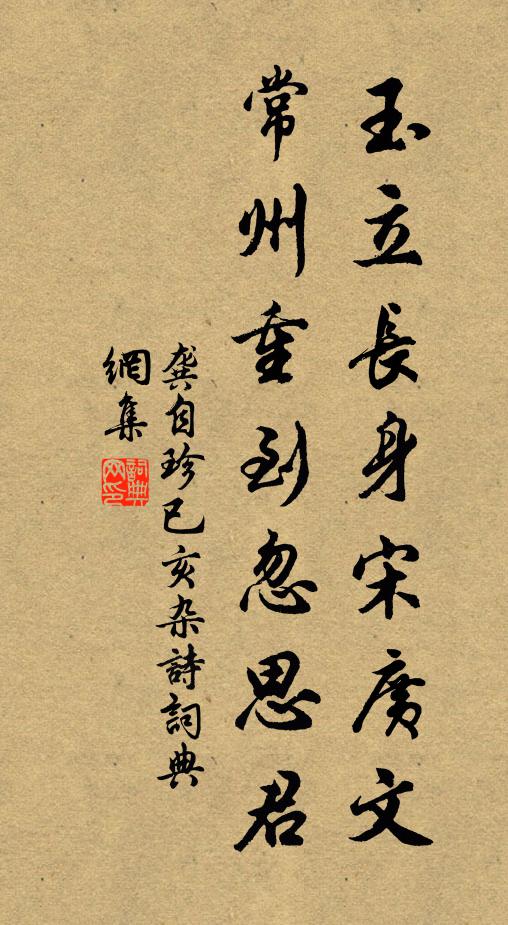 玉立長身宋廣文
常州重到忽思君
龔自珍已亥杂詩詞典
網集
詞典網印